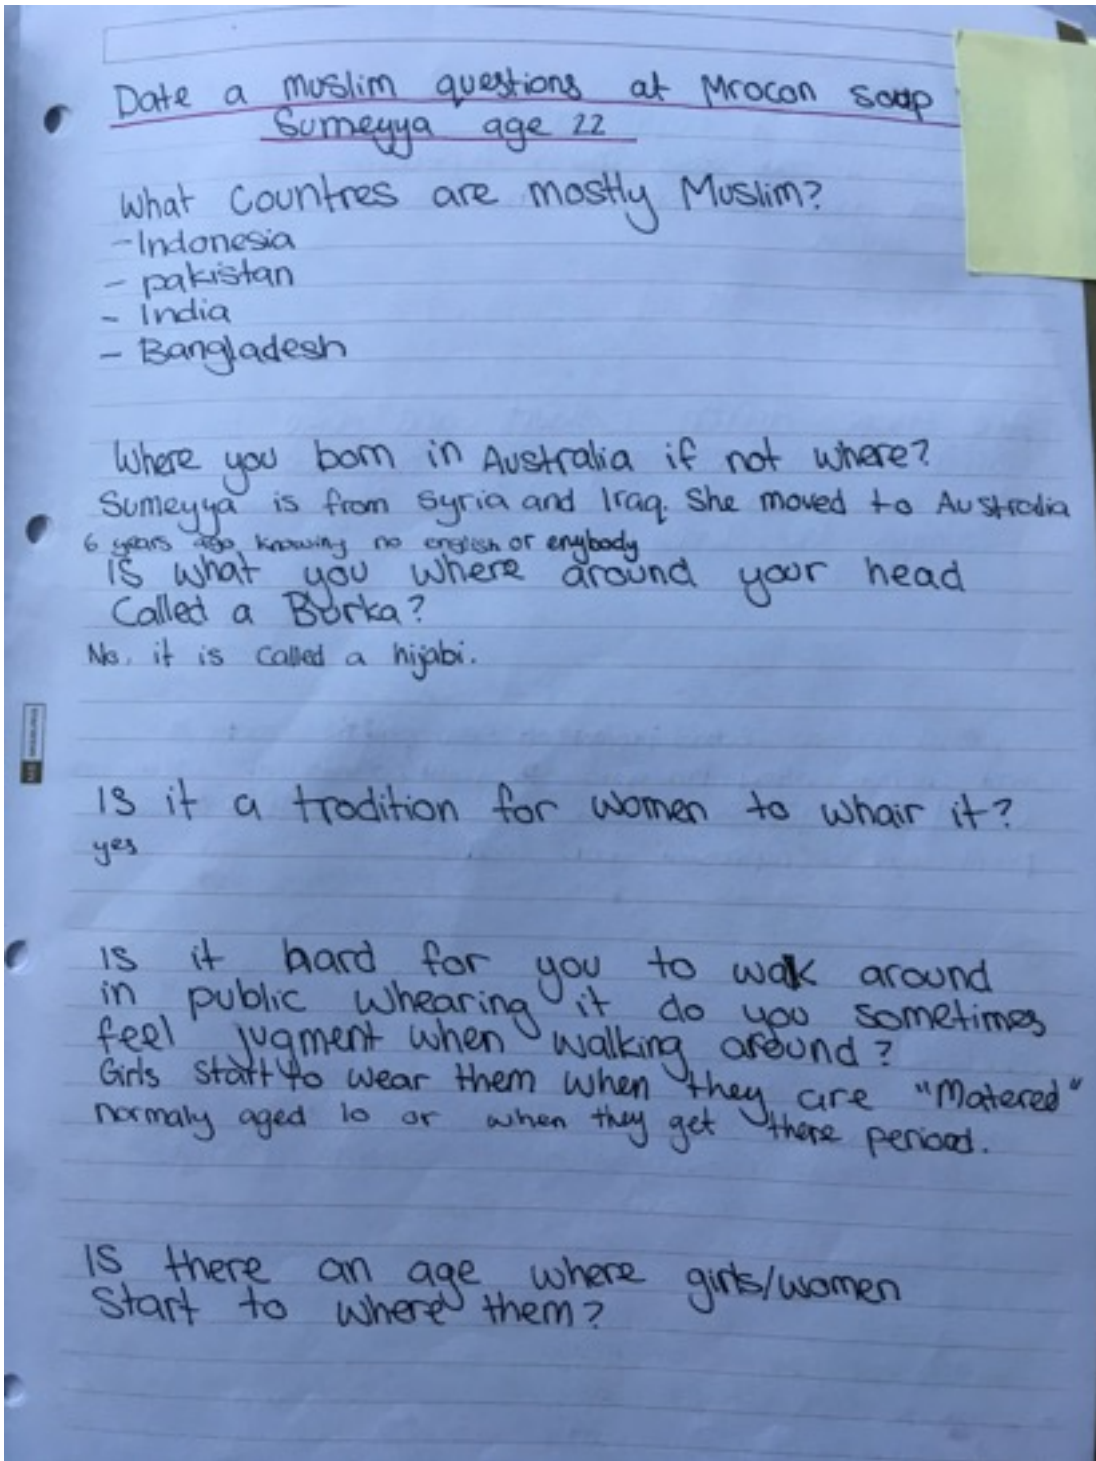 Date a muslim questions at Mrocan soup
Sumeyya age 22
What Countres are mostly Muslim?
- Indonesia
- pakistan
- India
- Bangladesh
Where you born in Australia if not where?
Sumeyya is from Syria and Iraq. She moved to Australia
6 years ago, knowing no english or enybody
IS what you where around your head
Called a Burka?
No, it is called a hijabi.
IS it a tradition for women to whair it?
yes
IS it hard for you to walk around
in public whearing it do you sometimes
feel jugment when walking around?
Girls start to wear them when they are "Matered"
normaly aged 10 or when they get there period.
IS there an age where girls/women
Start to where them?